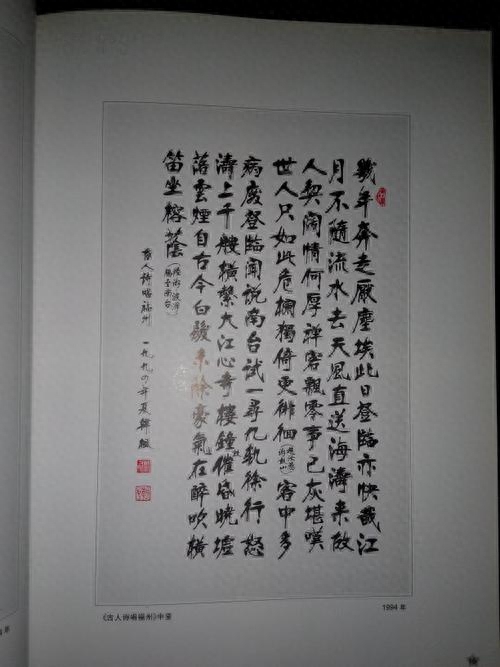 幾年奔走厭塵埃此日登臨亦快哉江
月不隨流水去天風直送海濤來故
人契闊情何厚禪客飄零事已灰堪嘆
世人只如此危欄獨倚更徘徊（趙汝愚）客中多
病廢登臨聞說南台試一尋九軌徐行怒
濤上千艘橫繫大江心寺樓鐘鼓催昏曉墟
落雲煙自古今白髮未除豪氣在醉吹橫
笛坐榕蔭（陸游 渡浮橋至南台）
古人詩唱福州 一九九四年夏
《古人诗唱福州》中堂
1994 年
年